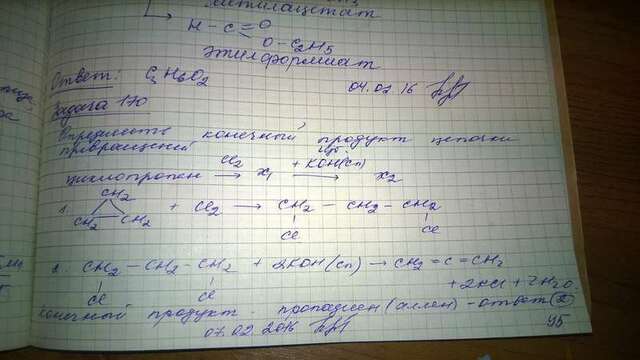 метилацетат
H - C = O
O - C2H5
этилформиат
Ответ: C3H6O2
04.02.16
Задача 170
Определить конечный продукт цепочки
превращений
Cl2 + KOH(сп)
циклопропан → X1 → X2
1. CH2 CH2 CH2 + Cl2 → CH2 - CH2 - CH2
Cl Cl
2. CH2 - CH2 - CH2 + 2KOH (сп) → CH2 = C = CH2
Cl Cl + 2KCl + 2H2O
Конечный продукт: пропадиен (аллен) - ответ (2)
07.02.2016
95